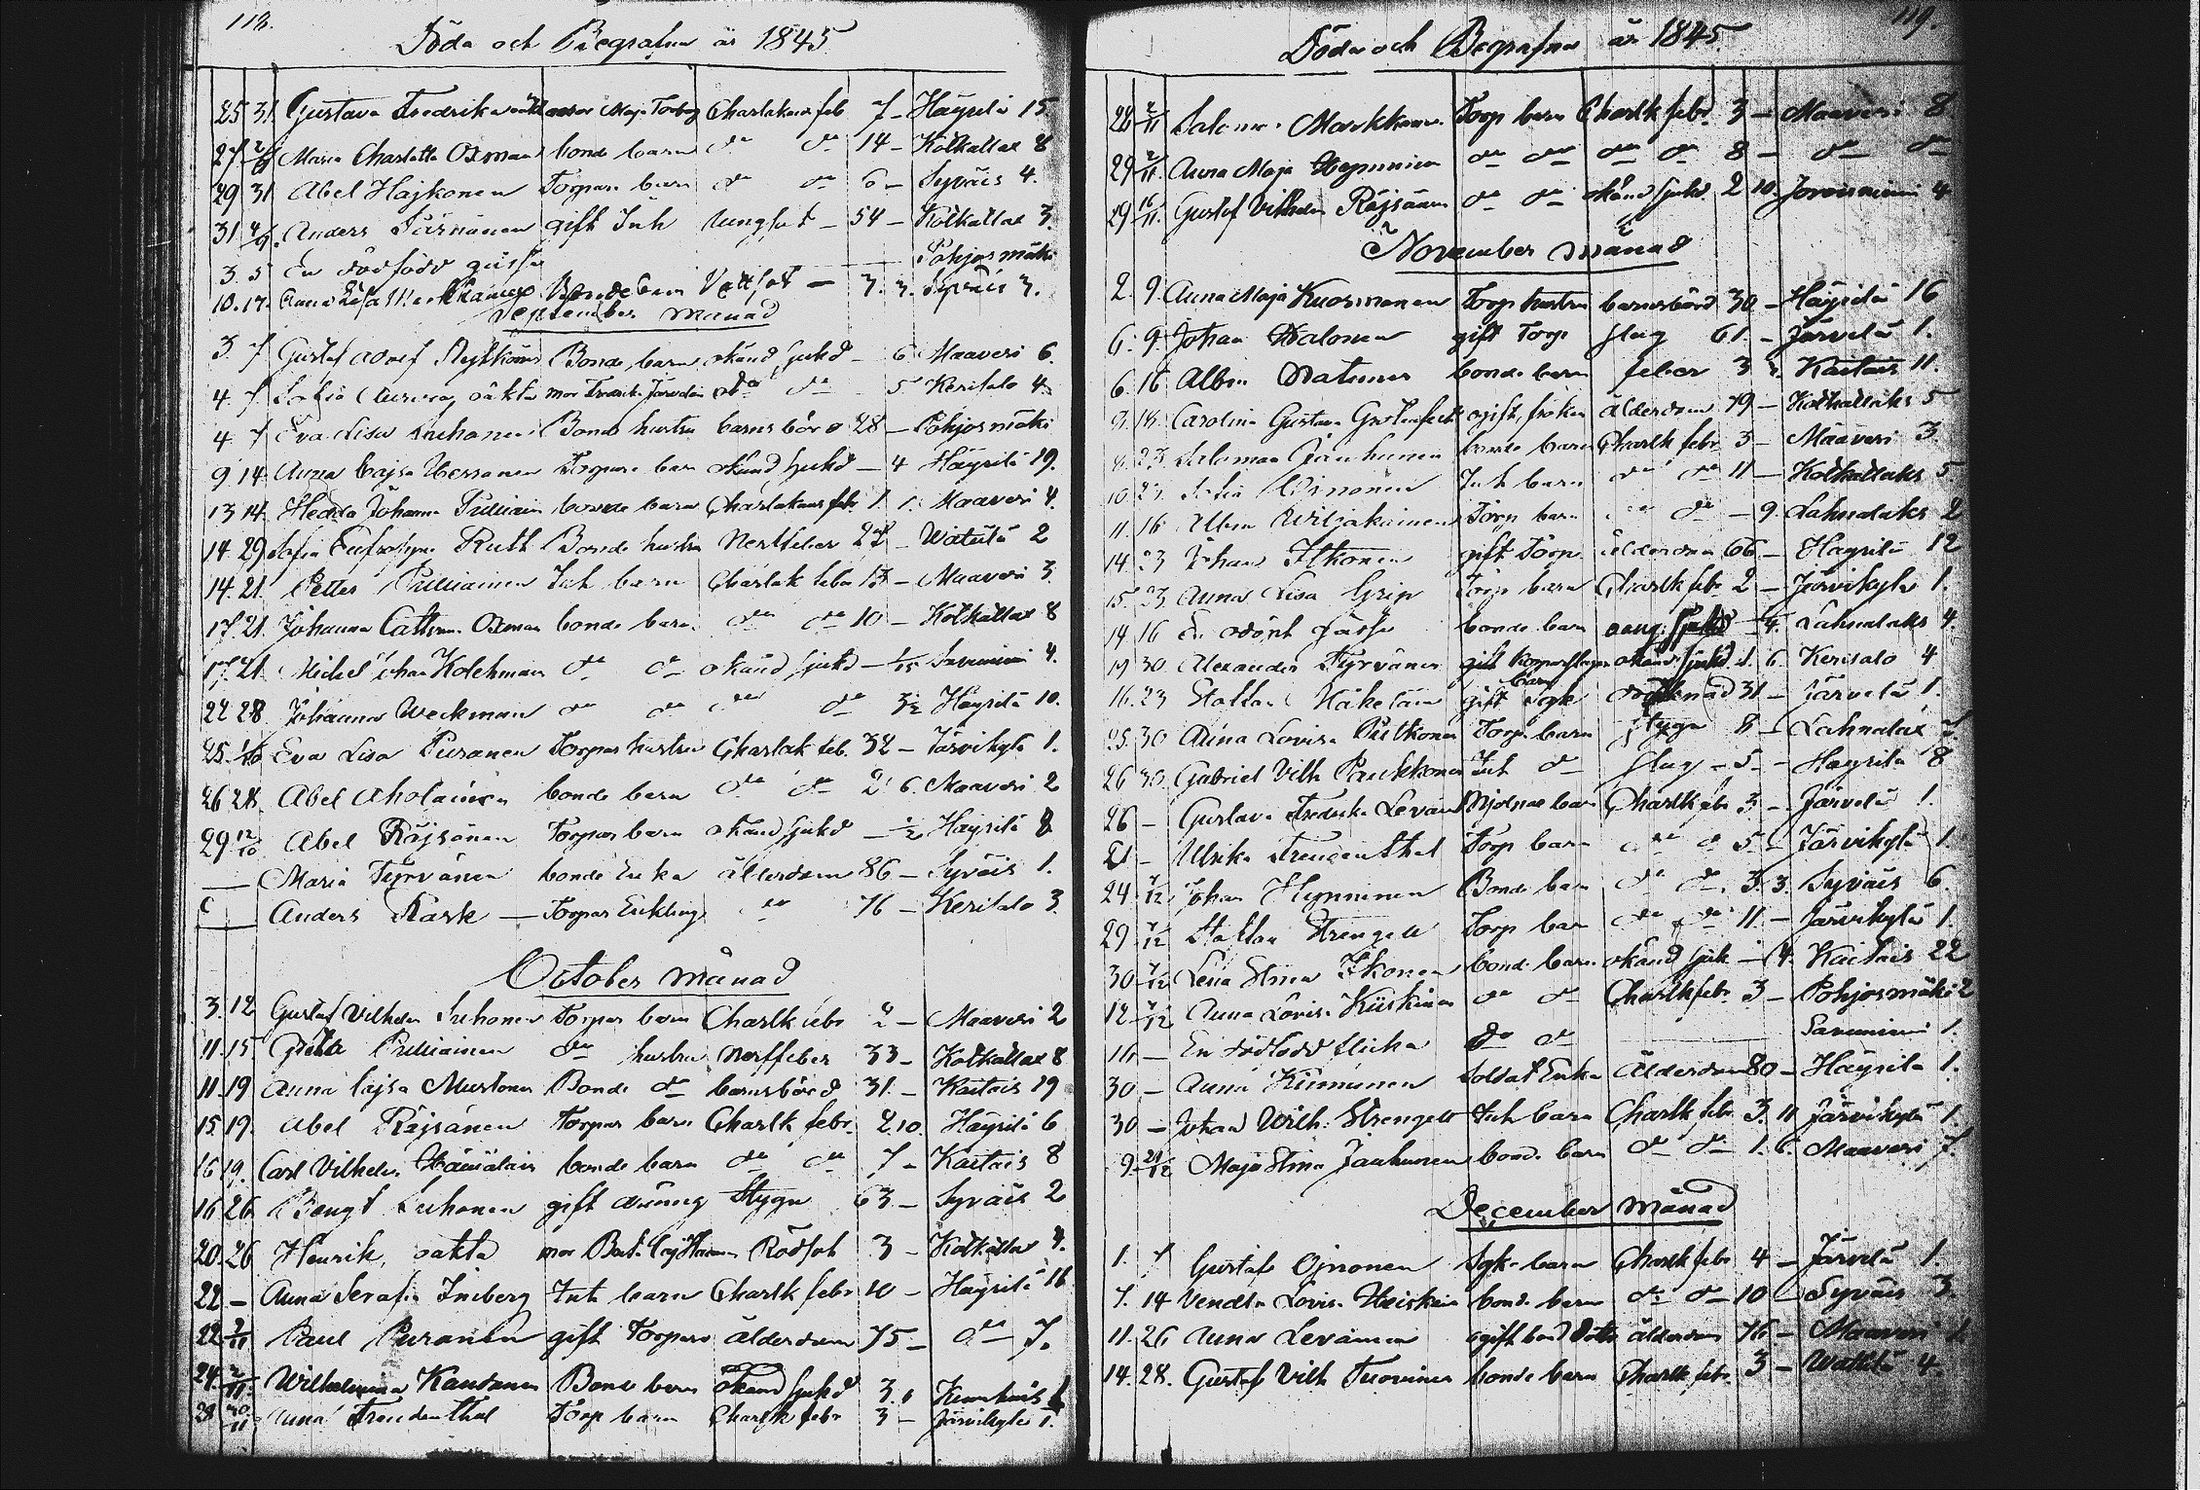 118.
Döda och Begrafna år 1845
25 31 Gustava Fredrika Charlakans feb 7 - Häyrilä 15
27 Maria Charlotta Oxman bonde barn do do 14 - Kolkallax 8
29 31 Abel Hajkonen Torpare barn do do 6 - Syväis 4.
31 4/9 Anders Pärnänen gift Inh Lungsot - 54 - Kolkallax 3.
3. 5 En dödfödd gåsse Pohjosmäki
10. 14. Anna Lisa Bonde barn Vattsot - 7. 3. Syväis 3.
September månad
3. 7 Gustaf Adolf Bonde barn okänd sjukd - 6. Maaveri 6.
4. 7 Sofia oäkta mor Fredrika do do 5. Kerisalo 4.
4. 7 Eva Lisa Inehonen Bonde hustru barnsbörd 28 - Pohjosmäki
9 14. Anna Cajsa Torpare barn okänd sjukd - 4 Häyrilä 19.
13 14. Hedda Johanna Pulliain bonde barn Charlakans febr 1. 1. Maaveri 4.
14. 29 Sofia Eufrosyne Ruth Bonde hustru Nerffeber 27 - Watula 2
14. 21. Petter Pulliainen Inh barn Charlak febr 13 - Maaveri 3.
17. 21. Johanna Cathrina Oxman bonde barn do do 10 - Kolkallax 8
17. 21. Michel Johan Kolehmain do do okänd sjukd - Savuniemi 4.
22 28. Johanna Weckman do do do do 3½ Häyrilä 10.
25. Eva Lisa Puranen Torpar hustru Charlak feb. 32 - Järvikylä 1.
26 28. Abel Aholainen bonde barn do do 2 6. Maaveri 2
29 12/10 Abel Räjsänen Torpar barn okänd sjukd - ½ Häyrilä 8
— Maria Tyrväinen bonde Enka ålderdom 86 - Syväis 1.
— Anders Rask — Torpar Enkling do 76 - Kerisalo 3.
October månad
3. 12 Gustaf Vilhelm Inehonen Torpar barn Charlk febr 2 - Maaveri 2
11. 15 Pulliainen do hustru Nerffeber 33 - Kolkallax 8
11. 19 Anna Cajsa Mustonen Bonde do barnsbörd 31. - Kaitais 19
15. 19. Abel Räjsänen Torpar barn Charlk febr. 2. 10. Häyrilä 6
16 19. Carl Vilhelm Hämäläin bonde barn do do 7 - Kaitais 8
16 26. Bengt Inehonen gift dräng Stygn 63 - Syväis 2
20. 26 Henrik, oäkta mor Rödsot 3 - Kolkallax 4.
22 - Anna Serafia Imberg Inh barn Charlk febr 10 - Häyrilä 16
22 2/11 Paul Puranen gift Torpare ålderdom 75 - do 7.
24. 2/11. Wilhelmina Kautonen Bonde barn okänd sjukd 3.
28 Anna Freudenthal Torp barn Charlk febr 3 - Järvikylä 1.
119.
Döda och Begrafna år 1845
28 2/11 Saloma Markkanen Torp barn Charlk febr. 3 - Maaveri 8.
29 2/11. Anna Maja Hynninen do do do do 8 - do do
29 16/11. Gustaf Vilhelm Räjsänen do do okänd sjukd. 2 10. Joroisniemi 4
November månad
2. 9. Anna Maja Kuosmanen Torp hustru barnsbörd 30 - Häyrilä 16
6. 9. Johan Halonen gift Torp slag 61. - Järvelä 1.
6. 16 Albin Natunen bonde barn feber 3 Kaitais 11.
9. 18. Carolina Gustava Grotenfelt ogift, fröken ålderdom 79 - Kolkallaks 5
8. 23. Saloman Jauhunen bonde barn Charlk febr. 3 - Maaveri 3.
10. 23. Sofia Winonen Inh barn do do 11 - Kolkallaks 5
11. 16 Albin Wiljakainen Torp barn do do - 9. Lahnalaks 2
14. 23 Johan Itkonen gift Torp ålderdom 66 - Häyrilä 12
15. 23. Anna Lisa Grip Torp barn Charlk febr 2 - Järvikylä 1.
14 16 En gåsse bonde barn Lahnalaks 4.
19 30 Alexander Tyrväinen okänd sjukd 1. 6. Kerisalo 4
16. 23 Staffan Häkeläin gift 31 - Järvelä 1.
25. 30 Anna Lovisa Putkonen Torp barn stygn 8 - Lahnalax
26 30. Gabriel Vilh Paukkonen Inh do slag - 5 - - Häyrilä 8
26 - Gustava Fredrika Levänen Mjölnar barn Charlk febr 3 - Järvelä 1.
21 - Ulrika Freudenthal Torp barn do do 5 - Järvikylä 1.
24 7/12 Johan Hynninen Bonde barn do do. 3. 3. Syväis 6.
29 7/12 Staffan Strengell Torp barn do do 11. - Järvikylä 1.
30 7/12 Lena Stina Itkonen bonde barn okänd sjuk - 4. Kaitais 22
12 7/12 Anna Lovisa Kiiskinen do do Charlk febr. 3 - Pohjosmäki 2
16 — En dödfödd flicka do do Savuniemi 1.
30 - Anna Kimunen Soldat Enka Ålderdom 80 - Häyrilä 1.
30 - Johan Wilh. Strengell Inh barn Charlk febr. 3. 11 Järvikylä 1.
9. 21/12 Maja Stina Jauhunen bonde barn do do 1. 6. Maaveri 7.
December månad
1. 7 Gustaf Ojnonen barn Charlk febr 4 - Järvelä 1.
7. 14 Vendla Lovisa Heiskain bonde barn do do 10 - Syväis 3.
11. 26 Anna Levänen ogift bond dotter ålderdom 76 - Maaveri 1.
14. 28. Gustaf Vilh Tuovinen bonde barn Charlk febr. 3 - Wattila 4.